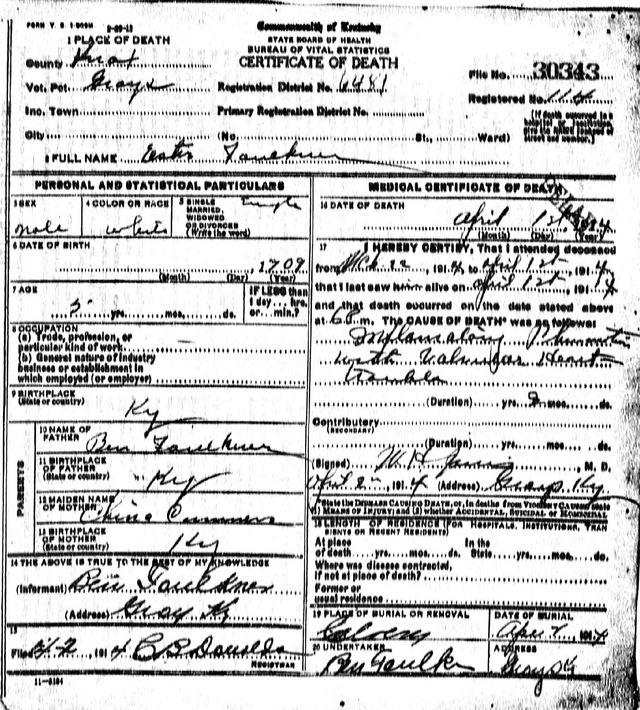 FORM V. S. 1-
Commonwealth of Kentucky
STATE BOARD OF HEALTH
BUREAU OF VITAL STATISTICS
CERTIFICATE OF DEATH
1 PLACE OF DEATH
County Knox
Vot. Pct. Grays
Registration District No. 6481
File No. 30343
Inc. Town
Primary Registration District No.
Registered No. 114
City
(No.
St.,
Ward)
[If death occurred in a hospital or institution, give its NAME instead of street and number.]
2 FULL NAME Faulkner
PERSONAL AND STATISTICAL PARTICULARS
3 SEX
male
4 COLOR OR RACE
white
5 SINGLE, MARRIED, WIDOWED OR DIVORCED (Write the word)
Single
6 DATE OF BIRTH
1909
(Month) (Day) (Year)
7 AGE
5 yrs. mos. ds.
IF LESS than 1 day... hrs. or min.?
8 OCCUPATION
(a) Trade, profession, or particular kind of work
(b) General nature of industry business or establishment in which employed (or employer)
9 BIRTHPLACE
(State or country)
Ky
PARENTS
10 NAME OF FATHER
Ben Faulkner
11 BIRTHPLACE OF FATHER
(State or country)
Ky
12 MAIDEN NAME OF MOTHER
13 BIRTHPLACE OF MOTHER
(State or country)
Ky
14 THE ABOVE IS TRUE TO THE BEST OF MY KNOWLEDGE
(Informant) Ben Faulkner
(Address) Gray Ky
15
Filed 4-2, 1914
REGISTRAR
11-3184
MEDICAL CERTIFICATE OF DEATH
16 DATE OF DEATH
April 1st 1914
(Month) (Day) (Year)
17 I HEREBY CERTIFY, That I attended deceased
from Mch 22, 1914, to April 1st, 1914,
that I last saw him alive on April 1st, 1914
and that death occurred on the date stated above
at 6 m. The CAUSE OF DEATH* was as follows:
Inflamatory Rhumatis
with Valvular Heart
trouble
(Duration) yrs. mos. ds.
Contributory
(SECONDARY)
(Duration) yrs. mos. ds.
(Signed) W. H. M. D.
April 2, 1914 (Address) Grays Ky
*State the DISEASE CAUSING DEATH, or, in deaths from VIOLENT CAUSES state (1) MEANS OF INJURY; and (2) whether ACCIDENTAL, SUICIDAL or HOMICIDAL
18 LENGTH OF RESIDENCE (FOR HOSPITALS, INSTITUTIONS, TRANSIENTS OR RECENT RESIDENTS)
At place of death yrs. mos. ds.
In the State yrs. mos. ds.
Where was disease contracted, if not at place of death?
Former or usual residence
19 PLACE OF BURIAL OR REMOVAL
DATE OF BURIAL
April 2 1914
20 UNDERTAKER
Ben Faulkner
ADDRESS
Grays Ky